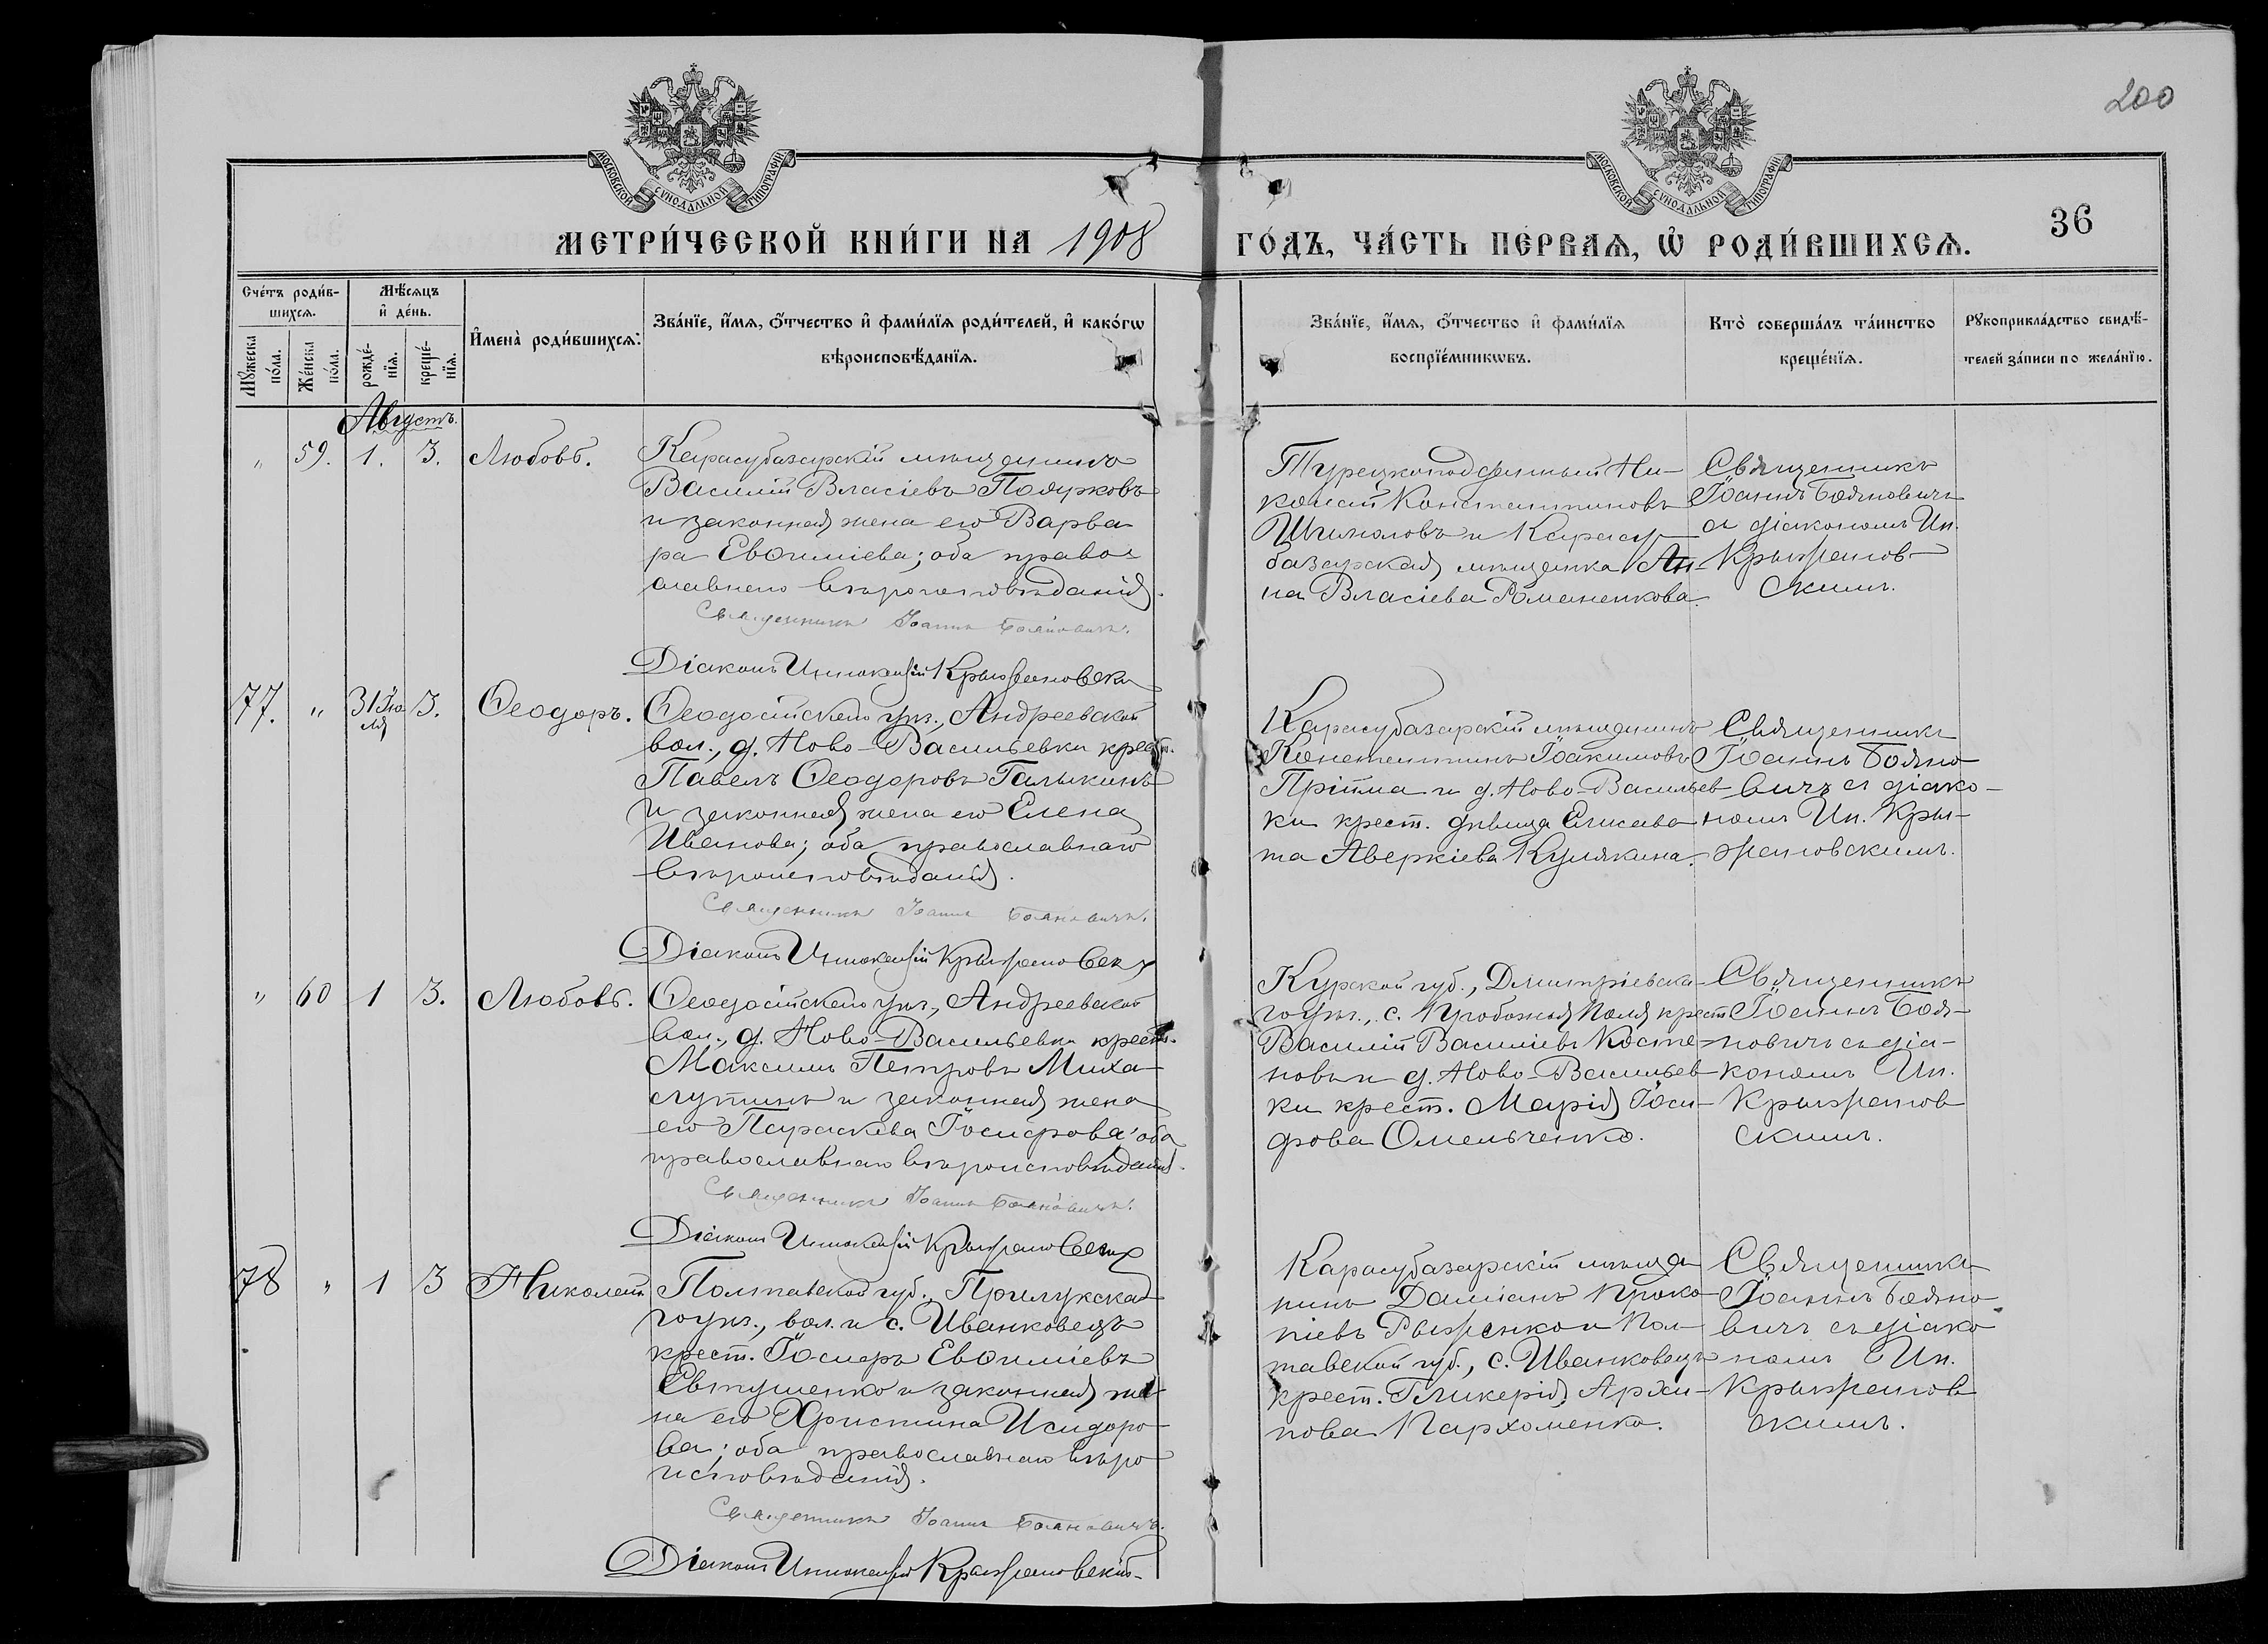 200
МОСКОВСКОЙ СУНОДАЛЬНОЙ ТИПОГРАФІИ
МОСКОВСКОЙ СУНОДАЛЬНОЙ ТИПОГРАФІИ
36
МЕТРИ́ЧЕСКОЙ КНИ́ГИ НА 1908 ГО́ДЪ, ЧА́СТЬ ПЕ́РВАѦ, Ѡ҆ РОДИ́ВШИХСѦ.
Сче́тъ роди́в-
шихсѧ.
Мꙋ́жеска
по́ла.
Же́нска
по́ла.
Мѣ́сѧцъ
и҆ де́нь.
рожде́-
нїѧ.
креще́-
нїѧ.
И҆мена̀ роди́вшихсѧ:
Зва́нїе, и҆́мѧ, ѻ҆́тчество и҆ фами́лїѧ роди́телей, и҆ како́гѡ
вѣроисповѣ́данїѧ.
Зва́нїе, и҆́мѧ, ѻ҆́тчество и҆ фами́лїѧ
воспрїе́мникѡвъ.
Кто̀ соверша́лъ та́инство
креще́нїѧ.
Рꙋкоприкла́дство свидѣ́-
телей за́писи по жела́нїю.
Августъ.
„ 59. 1. 3. Любовь.
Карасубазарскій мѣщанинъ
Василій Власіевъ
и законная жена его Варва
ра Евѳиміева; оба право-
славнаго вѣроисповѣданія.
Священникъ Іоаннъ Бояновичъ.
Діаконъ Иннокентій Крыжановскій
Турецкоподданный Ни-
колай Константиновъ
и Карасу-
базарская мѣщанка Ан-
на Власіева Романенкова.
Священникъ
Іоаннъ Бояновичъ
съ діакономъ Ин.
Крыжанов-
скимъ.
77. „ 31 Ію
ля 3. Ѳеодоръ.
Ѳеодосійскаго уѣз., Андреевской
вол., д. Ново-Васильевки крест.
Павелъ Ѳеодоровъ Галыкинъ
и законная жена его Елена
Иванова; оба православнаго
вѣроисповѣданія.
Священникъ Іоаннъ Бояновичъ.
Діаконъ Иннокентій Крыжановскій
Карасубазарскій мѣщанинъ
Константинъ Іоакимовъ
и д. Ново-Васильев
ки крест. дѣвица Елисаве
та Аверкіева Кулякина.
Священникъ
Іоаннъ Бояно-
вичъ съ діако-
номъ Ин. Кры-
жановскимъ.
„ 60 1 3. Любовь.
Ѳеодосійскаго уѣз., Андреевской
вол., д. Ново-Васильевки крест.
Максимъ Петровъ Миха-
лутинъ и законная жена
его Параскева Іосифова; оба
православнаго вѣроисповѣданія.
Священникъ Іоаннъ Бояновичъ.
Діаконъ Иннокентій Крыжановскій
Курской губ., Дмитріевска-
го уѣз., с. Поля крест.
Василій Василіевъ Косте-
новъ и д. Ново-Васильев
ки крест. Марія Іоси-
фова Омельченко.
Священникъ
Іоаннъ Боя-
новичъ съ діа-
кономъ Ин.
Крыжанов
скимъ.
78 „ 1 3 Николай.
Полтавской губ., Прилукска-
го уѣз., вол. и с. Иванковецъ
крест. Іосифъ Евѳиміевъ
Евтушенко и законная же-
на его Христина Исидоро-
ва; оба православнаго вѣро
исповѣданія.
Священникъ Іоаннъ Бояновичъ.
Діаконъ Иннокентій Крыжановскій
Карасубазарскій мѣща
нинъ Даміанъ Проко
піевъ Рыженко и Пол-
тавской губ., с. Иванковецъ
крест. Гликерія Архи-
пова Пархоменко.
Священникъ
Іоаннъ Бояно-
вичъ съ діако
номъ Ин.
Крыжанов
скимъ.